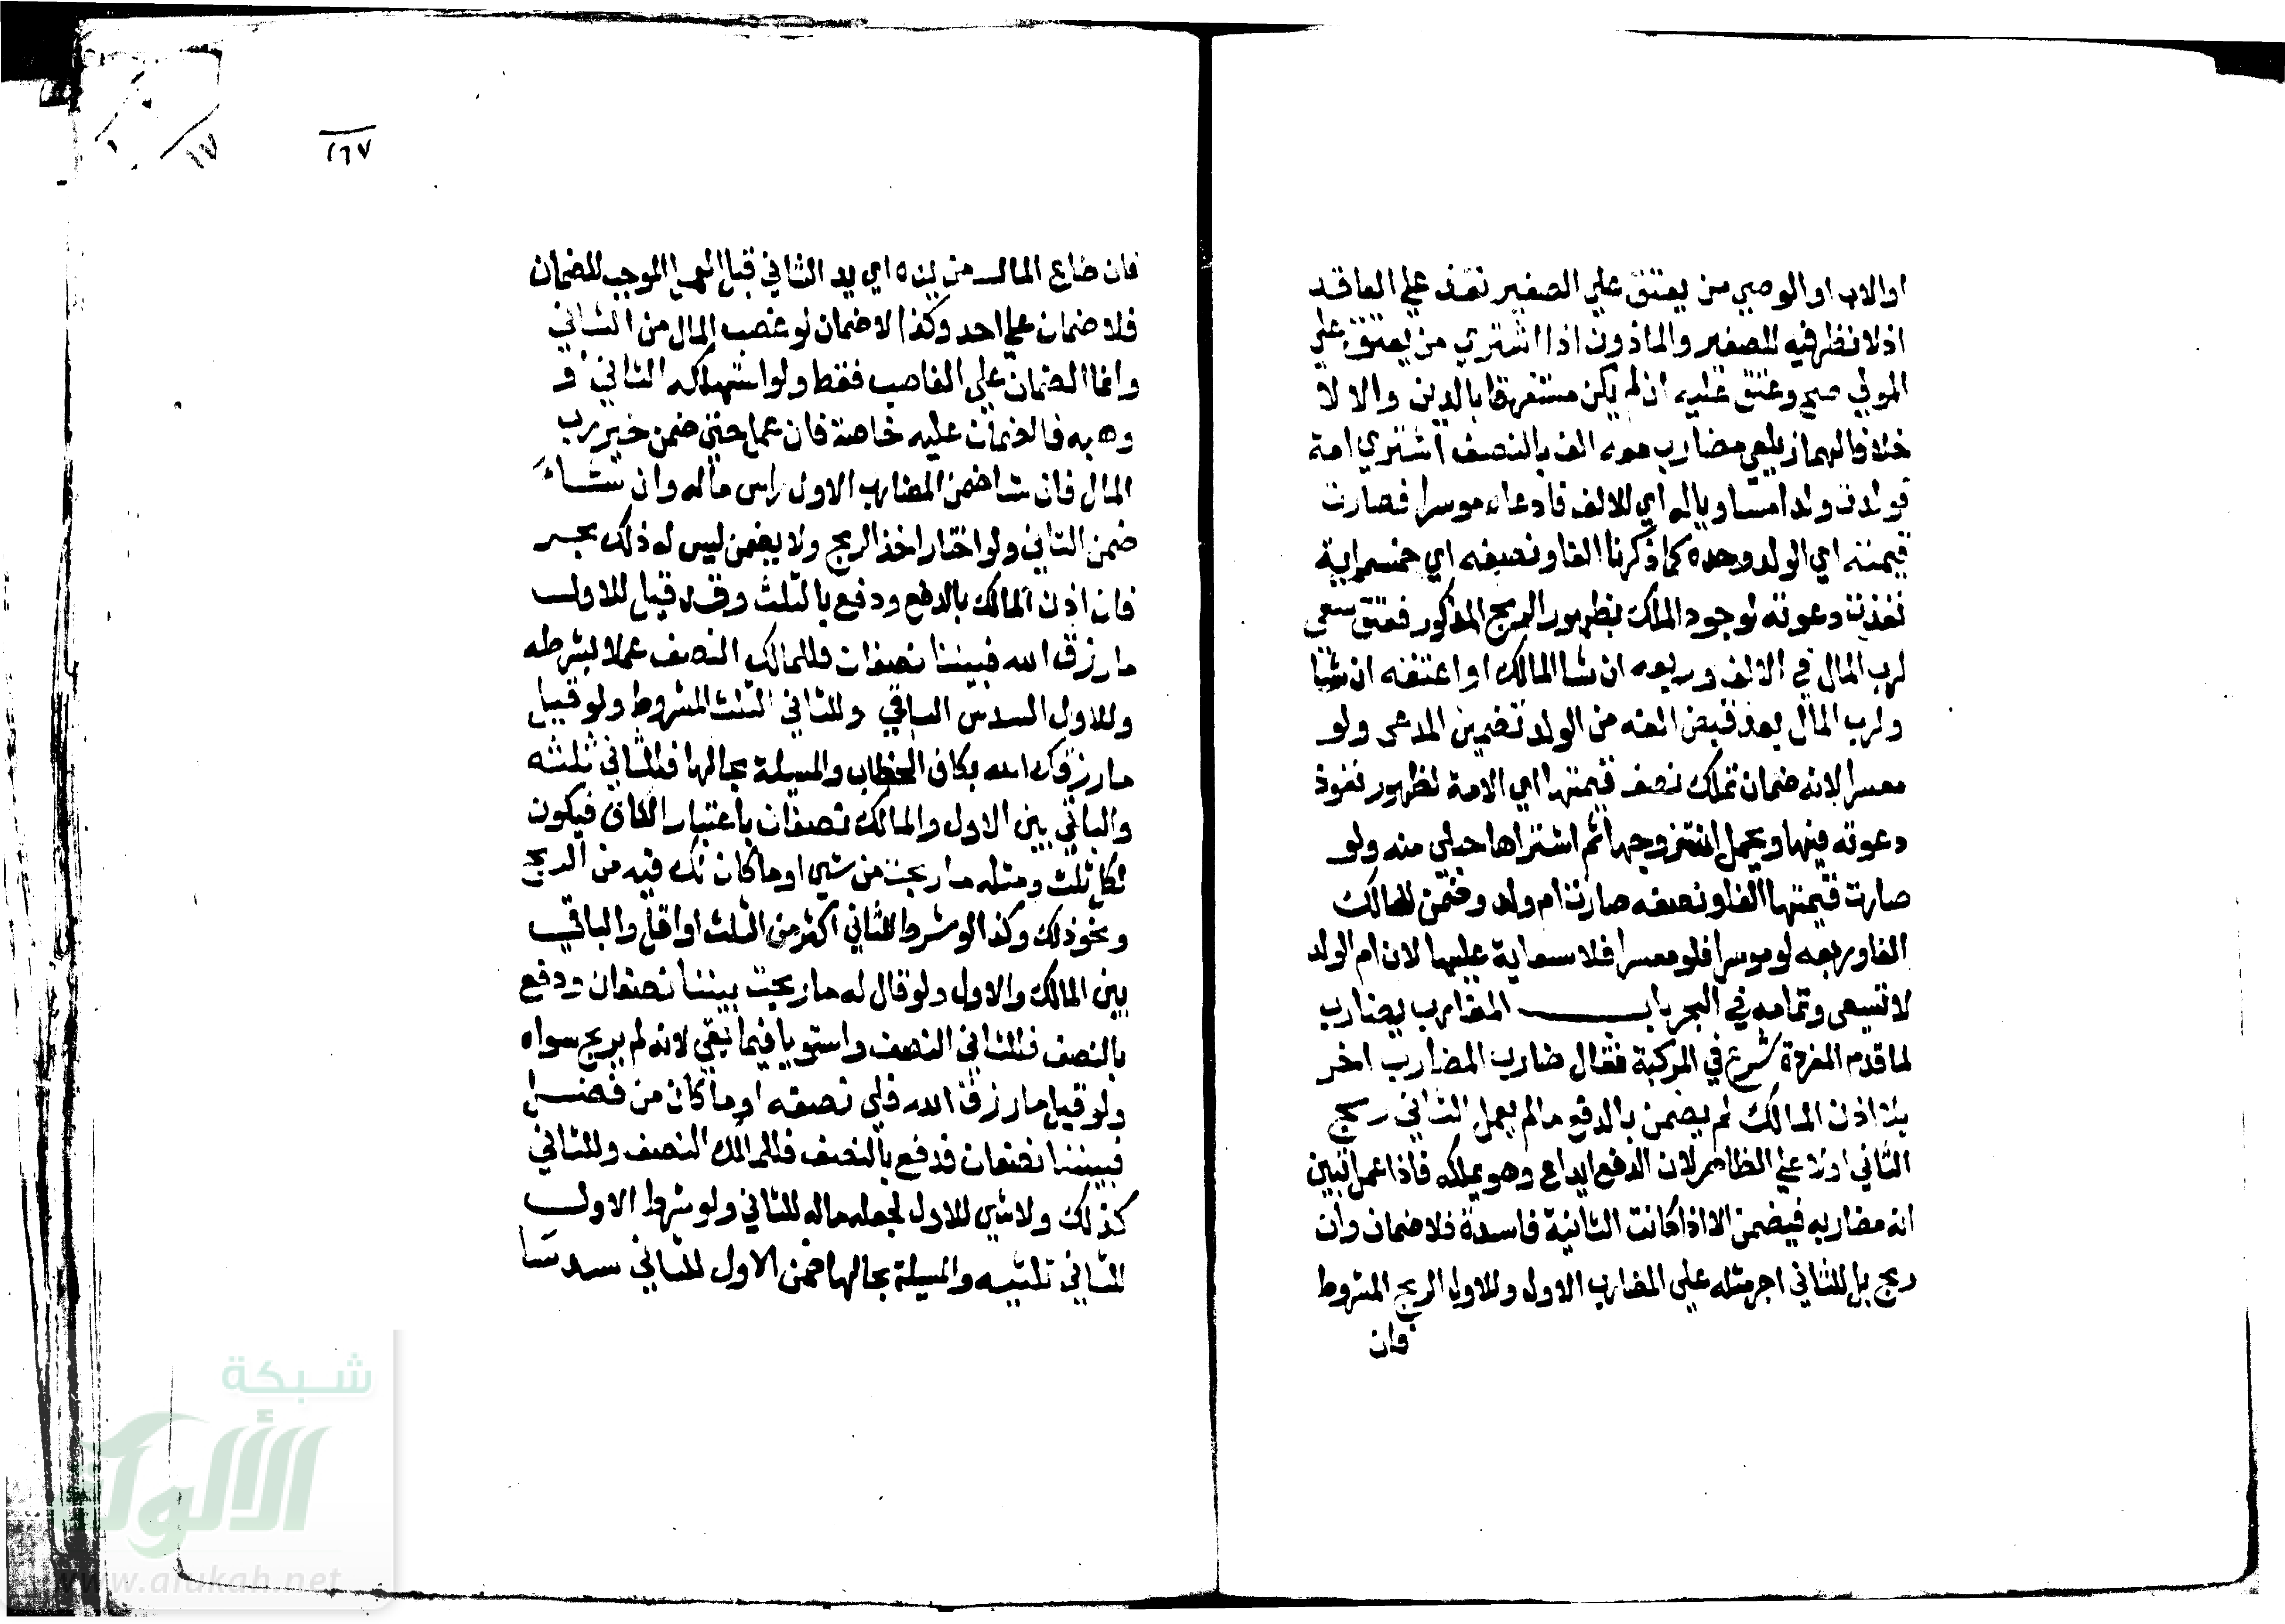 او الاب او الوصي من يعتق علي الصغير نفذ علي العاقد
اذ لا نظر فيه للصغير والماذون اذا اشتري من يعتق علي
المولي صح وعتق عليه ان لم يكن مستغرقا بالدين والا لا
خلافا لهما زيلعي مضارب معه الف بالنصف اشتري امة
فولدت ولدا مساويا له اي للالف فادعاه موسرا فصارت
قيمته اي الولد وحده كما ذكرنا الفا ونصفه اي خمسماية
نفذت دعوته لوجود الملك بظهور الربح المذكور فعتق سعي
لرب المال في الالف وربعه ان شا المالك او اعتقه ان شا
ولرب المال بعد قبض الفه من الولد تضمين المدعي ولو
معسرا لانه ضمان تملك نصف قيمتها اي الامة لظهور نفوذ
دعوته فيها ويحمل انه تزوجها ثم اشتراها حبلي منه ولو
صارت قيمتها الفا ونصفه صارت ام ولد وضمن للمالك
الفا وربعه لو موسرا فلو معسرا فلا سعاية عليها لان ام الولد
لا تسعي وتمامه في البحر باب المضارب يضارب
لما قدم المفردة شرع في المركبة فقال ضارب المضارب اخر
بلا اذن المالك لم يضمن بالدفع ما لم يعمل الثاني ربح
الثاني اولا علي الظاهر لان الدفع ايداع وهو يملكه فاذا عمل تبين
انه مضاربه فيضمن الا اذا كانت الثانية فاسدة فلا ضمان وان
ربح بل للثاني اجر مثله علي المضارب الاول وللاول الربح المشروط
فان
١٦٧
١٧
فان ضاع المال من يده اي يد الثاني قبل العمل الموجب للضمان
فلا ضمان علي احد وكذا لا ضمان لو غصب المال من الثاني
وانما الضمان علي الغاصب فقط ولو استهلكه الثاني او
وهبه فالضمان عليه خاصة فان عمل حتي ضمن خير رب
المال فان شا ضمن المضارب الاول راس ماله وان شاء
ضمن الثاني ولو اختار اخذ الربح ولا يضمن ليس له ذلك بحر
فان اذن المالك بالدفع ودفع بالثلث وقد قيل للاول
ما رزق الله فبيننا نصفان فللمالك النصف عملا بشرطه
وللاول السدس الباقي وللثاني الثلث المشروط ولو قيل
ما رزقك الله بكاف الخطاب والمسيلة بحالها فللثاني ثلثه
والباقي بين الاول والمالك نصفان باعتبار الكاف فيكون
لكل ثلث ومثله ما ربحت من شي او ما كان لك فيه من الربح
ونحو ذلك وكذا لو شرط للثاني اكثر من الثلث او اقل والباقي
بين المالك والاول ولو قال له ما ربحت بيننا نصفان ودفع
بالنصف فللثاني النصف واستويا فيما بقي لانه لم يربح سواه
ولو قيل ما رزق الله فلي نصفه او ما كان من فضل
فبيننا نصفان فدفع بالنصف فللمالك النصف وللثاني
كذلك ولا شي للاول لجعله ماله للثاني ولو شرط الاول
للثاني ثلثيه والمسيلة بحالها ضمن الاول للثاني سدسا
شبكة
الألوكة
www.alukah.net